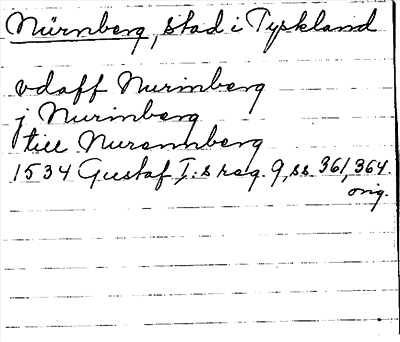 Nürnberg, stad i Tyskland
vdaff Nurinberg
j Nurinberg
till Nuremnberg
1534 Gustaf I:s reg. 9, ss. 361, 364.
orig.